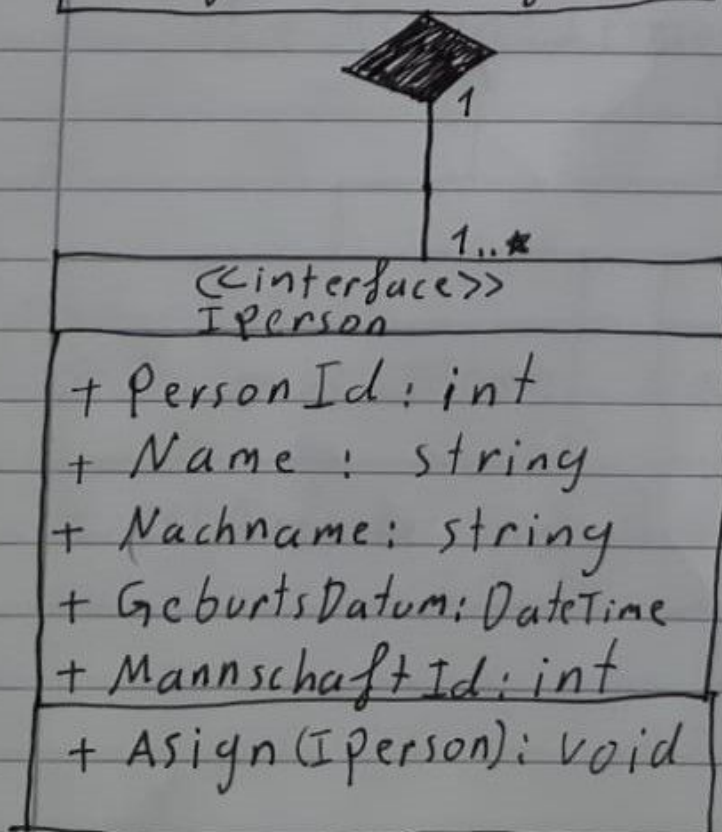 1
1..*
<<interface>>
IPerson
+ PersonId : int
+ Name : string
+ Nachname : string
+ GeburtsDatum : DateTime
+ MannschaftId : int
+ Asign(IPerson) : void